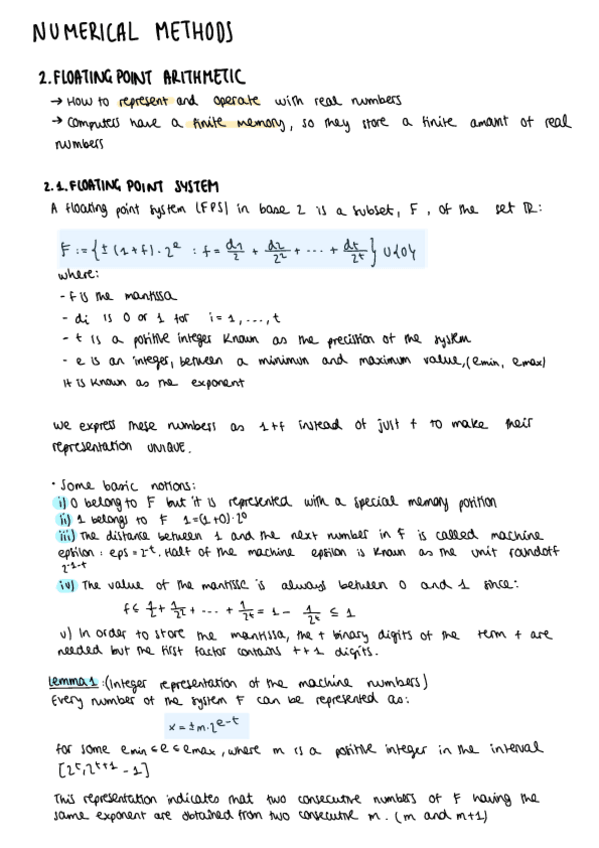 NUMERICAL METHODS
2. FLOATING POINT ARITHMETIC
→ How to represent and operate with real numbers
→ Computers have a finite memory, so they store a finite amant of real
numbers
2.1. FLOATING POINT SYSTEM
A floating point system (FPS) in base 2 is a subset, F, of the set ℝ:
F := {± (1+f) · 2^e : f = d1/2 + d2/2^2 + ... + dt/2^t} ∪ {0}
where:
- f is the mantissa
- di is 0 or 1 for i = 1, ..., t
- t is a positive integer known as the precision of the system
- e is an integer, between a minimum and maximum value, (emin, emax)
It is known as the exponent
We express these numbers as 1+f instead of just f to make their
representation UNIQUE.
· Some basic notions:
i) 0 belong to F but it is represented with a special memory position
ii) 1 belongs to F 1=(1+0)·2^0
iii) The distance between 1 and the next number in F is called machine
epsilon: eps = 2^-t. Half of the machine epsilon is known as the unit roundoff
2^-1-t
iv) The value of the mantissa is always between 0 and 1 since:
f ≤ 1/2 + 1/2^2 + ... + 1/2^t = 1 - 1/2^t ≤ 1
v) In order to store the mantissa, the t binary digits of the term f are
needed but the first factor contains t+1 digits.
Lemma 1: (Integer representation of the machine numbers)
Every number of the system F can be represented as:
x = ± m · 2^e-t
for some emin ≤ e ≤ emax, where m is a positive integer in the interval
[2^t, 2^t+1 - 1]
This representation indicates that two consecutive numbers of F having the
same exponent are obtained from two consecutive m. (m and m+1)